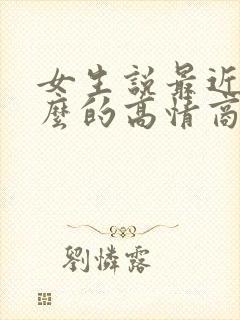 女生説最近
麽的高情商
劉憐露